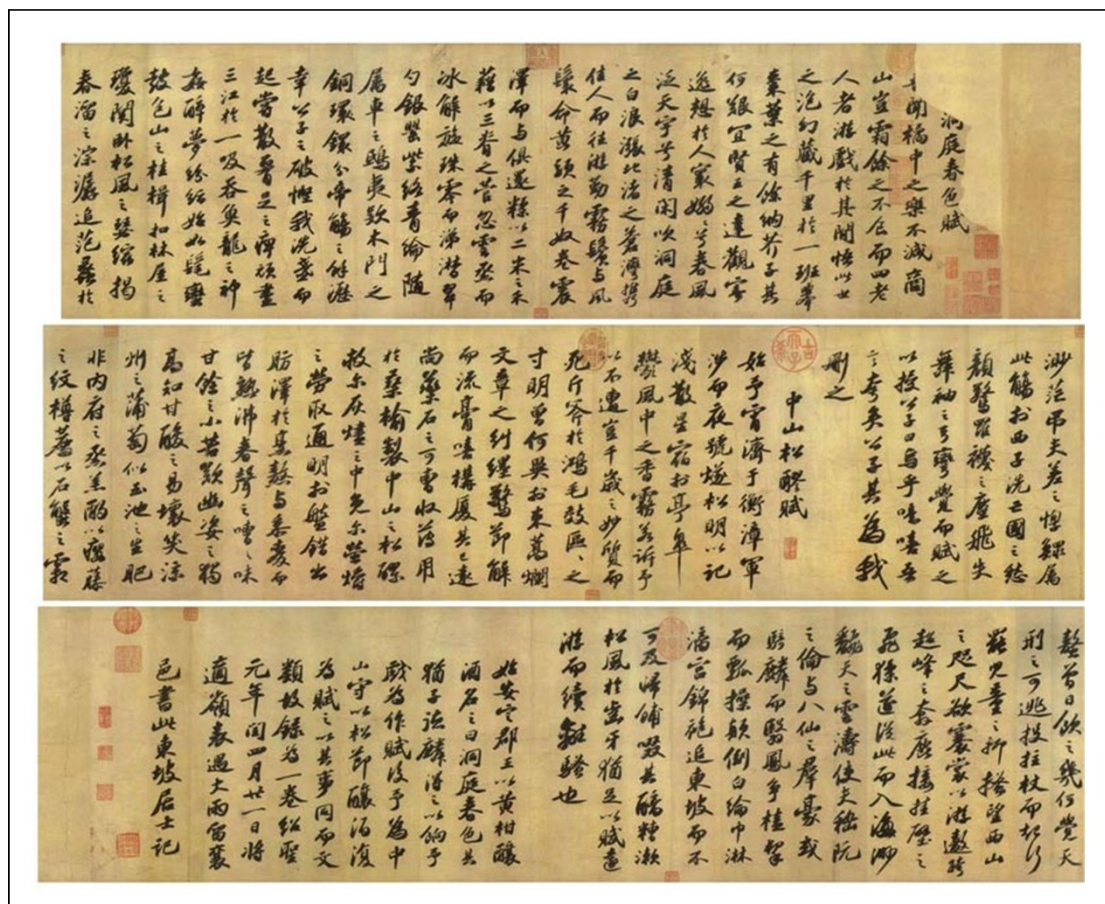 洞庭春色賦
聞橘中之樂不減商
山豈霜餘之不食而四老
人者游戲於其間悟此世
之泡幻藏千里於一班舉
棗葉之有餘納芥子其
何艱宜賢王之達觀寄
逸想於人寰嫋嫋兮春風
泛天宇兮清閑吹洞庭
之白浪漲北渚之蒼灣攜
佳人而往游勤霧鬢與風
鬟命黃頭之千奴卷震
澤而與俱還糅以二米之禾
藉以三脊之菅忽雲烝而
冰解旋珠零而涕潸翠
勺銀罌紫絡青綸隨
屬車之鴟夷款木門之
銅環鐶分帝觴之餘瀝
幸公子之破慳我洗盞而
起嘗散腰足之痺頑盡
三江於一吸吞魚龍之神
姦醉夢紛紜始如髦蠻
鼓包山之桂楫扣林屋之
瓊關卧松風之瑟縮揭
春溜之淙潺追范蠡於
渺茫弔夫差之惸鰥屬
此觴於西子洗亡國之愁
顏驚羅襪之塵飛失
舞袖之弓彎覺而賦之
以授公子曰烏乎噫嘻吾
言夸矣公子其為我
刪之
中山松醪賦
始予宵濟于衡漳軍
涉而夜號燧松明以記
淺散星宿於亭皋
鬱風中之香霧若訴予
以不遭豈千歲之妙質而
死斤斧於鴻毛效區區之
寸明曾何異於束蒿爛
文章之糾纆驚節解
而流膏嘻構廈其已遠
尚藥石之可曹收薄用
於桑榆製中山之松醪
救爾灰燼之中免爾螢爝
之勞取通明於盤錯出
肪澤於烹熬與黍麥而
皆熟沸舂聲之嘈嘈味
甘餘之小苦歎幽姿之獨
高知甘酸之易壞笑涼
州之蒲萄似玉池之生肥
非內府之烝羔酌以癭藤
之紋樽薦以石蟹之霜
螯曾日飲之幾何覺天
刑之可逃投拄杖而起行
罷兒童之抑搔望西山
之咫尺欲褰裳以游遨跨
超峰之奔鹿接挂壁之
飛猱遂從此而入海渺
翻天之雲濤使夫嵇阮
之倫與八仙之群豪或
騎麟而翳鳳爭榼挈
而瓢操顛倒白綸巾淋
漓宮錦袍追東坡而不
可及歸餔歠其醨糟漱
松風於齒牙猶足以賦遠
游而續離騷也
始安定郡王以黃柑釀
酒名之曰洞庭春色其
猶子德麟得之以餉予
戲為作賦後予為中
山守以松節釀酒復
為賦之以其事同而文
類故錄為一卷紹聖
元年閏四月廿一日將
適嶺表遇大雨留襄
邑書此東坡居士記